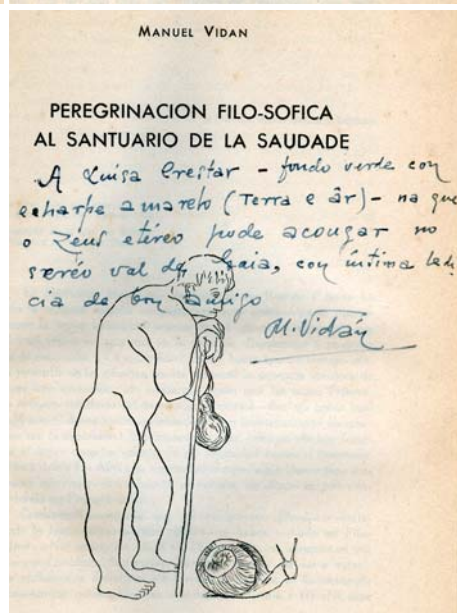 MANUEL VIDAN
PEREGRINACION FILO-SOFICA
AL SANTUARIO DE LA SAUDADE
A Luisa Crestar - fondo verde con
echarpe amarelo (Terra e âr) - na que
o Zeus etéreo pode acougar no
seréo val de Gaia, con íntima ledi
cia de bon amigo
M. Vidán